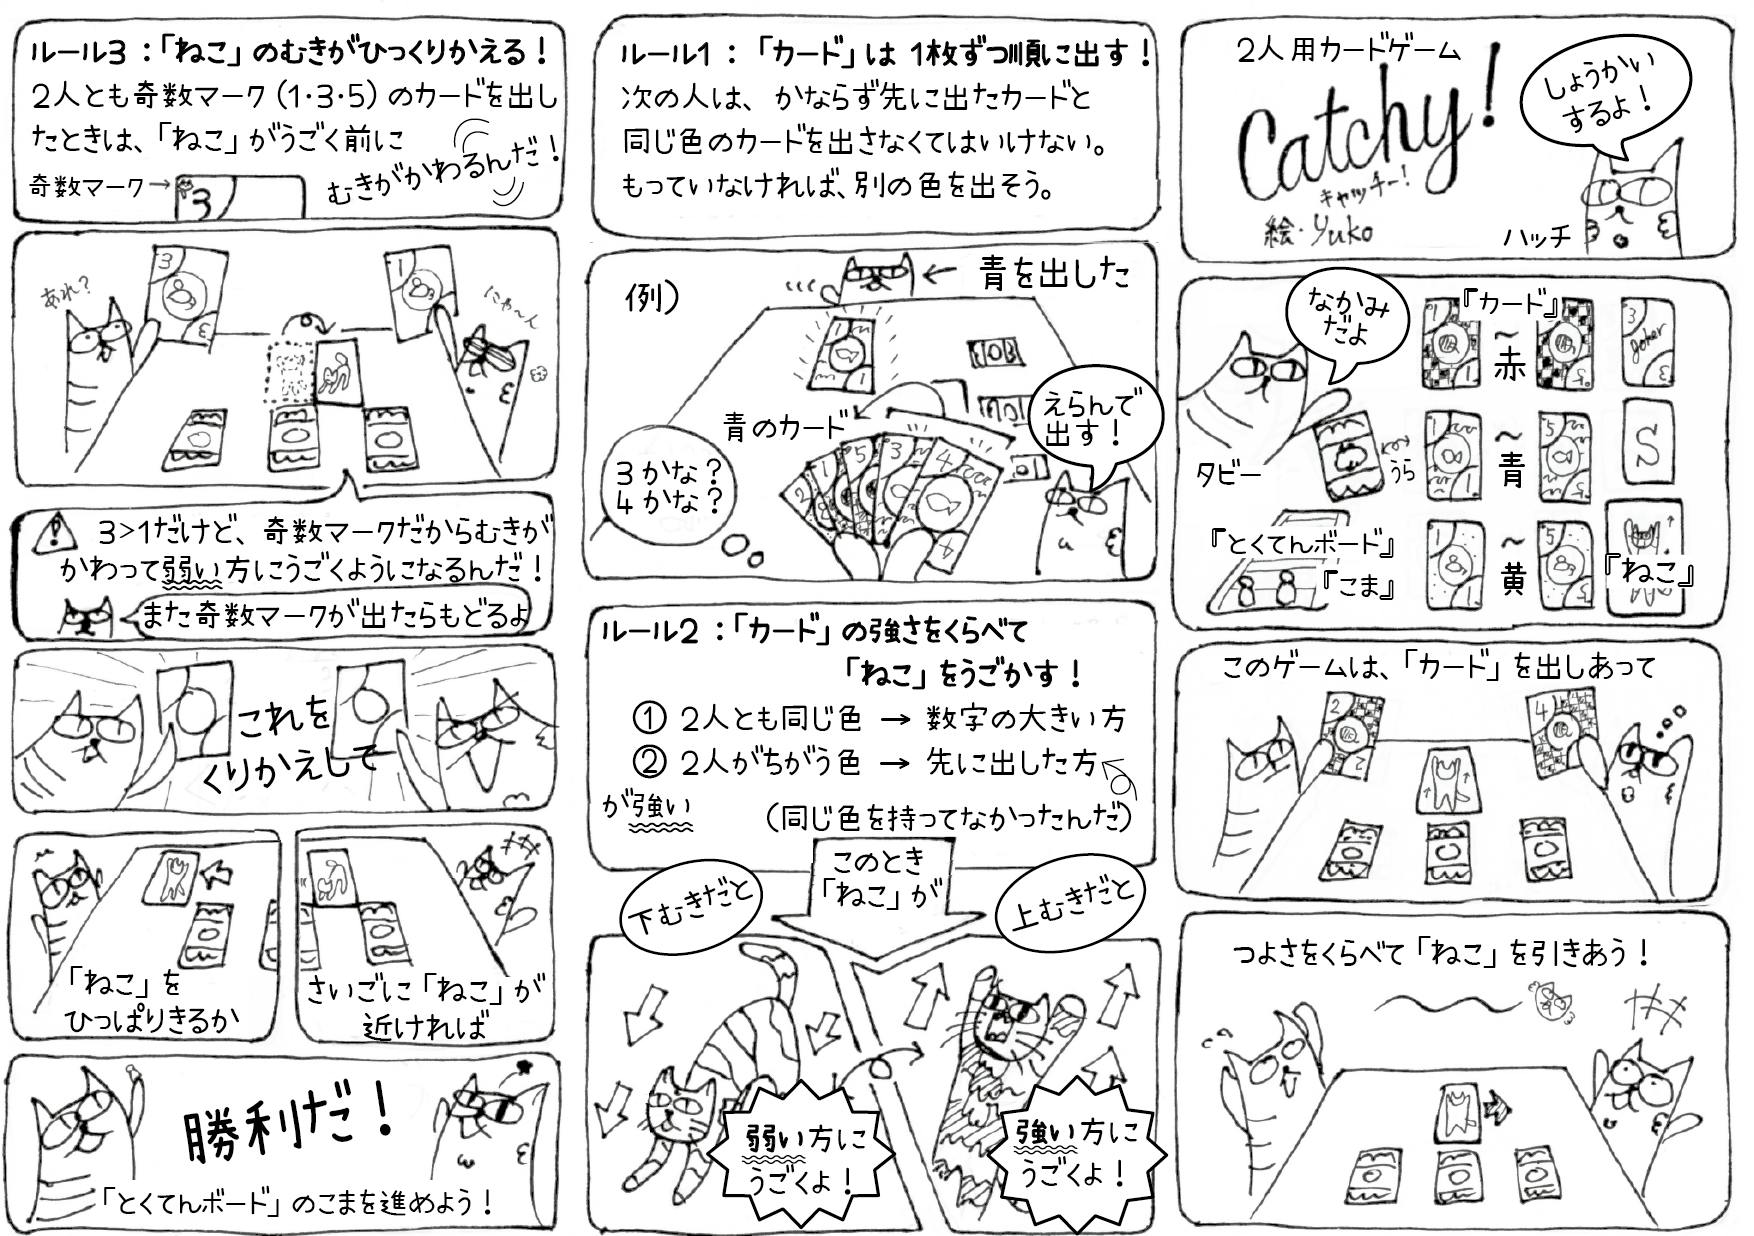 2人用カードゲーム
Catchy!
キャッチー!
絵・Yuko
しょうかい
するよ!
ハッチ
なかみ
だよ
『カード』
1
1
〜
赤
5
3
Joker
3
タビー
うら
1
1
〜
青
5
5
S
『とくてんボード』
『こま』
1
1
〜
黄
5
5
『ねこ』
このゲームは、「カード」を出しあって
2
2
4
つよさをくらべて「ねこ」を引きあう!
ルール1:「カード」は 1枚ずつ順に出す!
次の人は、かならず先に出たカードと
同じ色のカードを出さなくてはいけない。
もっていなければ、別の色を出そう。
例)
青を出した
1
1
青のカード
えらんで
出す!
3かな?
4かな?
2
1
5
3
4
4
ルール2:「カード」の強さをくらべて
「ねこ」をうごかす!
① 2人とも同じ色 → 数字の大きい方
② 2人がちがう色 → 先に出した方
が強い
(同じ色を持ってなかったんだ)
このとき
「ねこ」が
下むきだと
上むきだと
弱い方に
うごくよ!
強い方に
うごくよ!
ルール3:「ねこ」のむきがひっくりかえる!
2人とも奇数マーク(1・3・5)のカードを出し
たときは、「ねこ」がうごく前に
むきがかわるんだ!
奇数マーク→
3
あれ?
3
3
1
3
にゃ〜ん
3>1だけど、奇数マークだからむきが
かわって弱い方にうごくようになるんだ!
また奇数マークが出たらもどるよ
これを
くりかえして
「ねこ」を
ひっぱりきるか
さいごに「ねこ」が
近ければ
勝利だ!
「とくてんボード」のこまを進めよう!